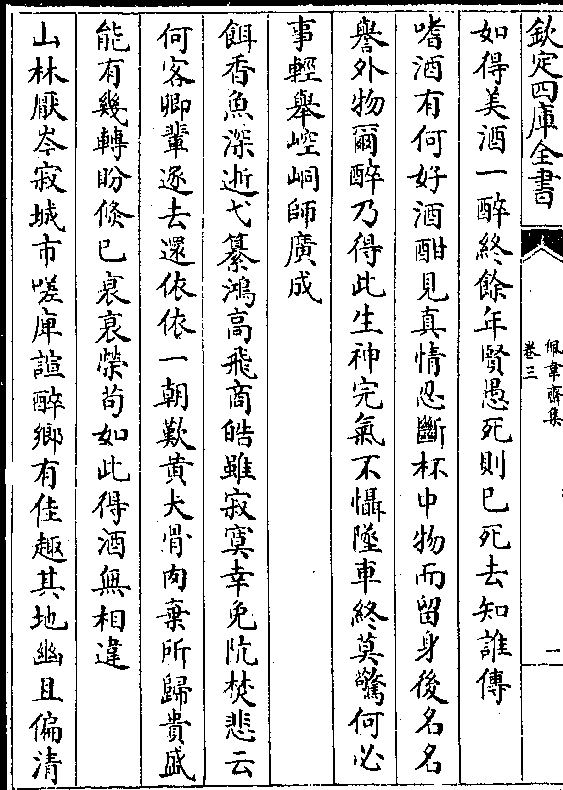 欽定四庫全書
佩韋齋集
卷三
一
如得美酒一醉終餘年賢愚死則已死去知誰傳
嗜酒有何好酒酣見真情忍斷杯中物而留身後名名
譽外物爾醉乃得此生神完氣不懾墜車終莫驚何必
事輕舉崆峒師廣成
餌香魚深逝弋纂鴻高飛商皓雖寂寞幸免阬焚悲云
何客卿輩逐去還依依一朝歎黄犬骨肉棄所歸貴盛
能有幾轉盼倐已衰衰榮苟如此得酒無相違
山林厭岑寂城市嗟庳諠醉鄉有佳趣其地幽且偏清